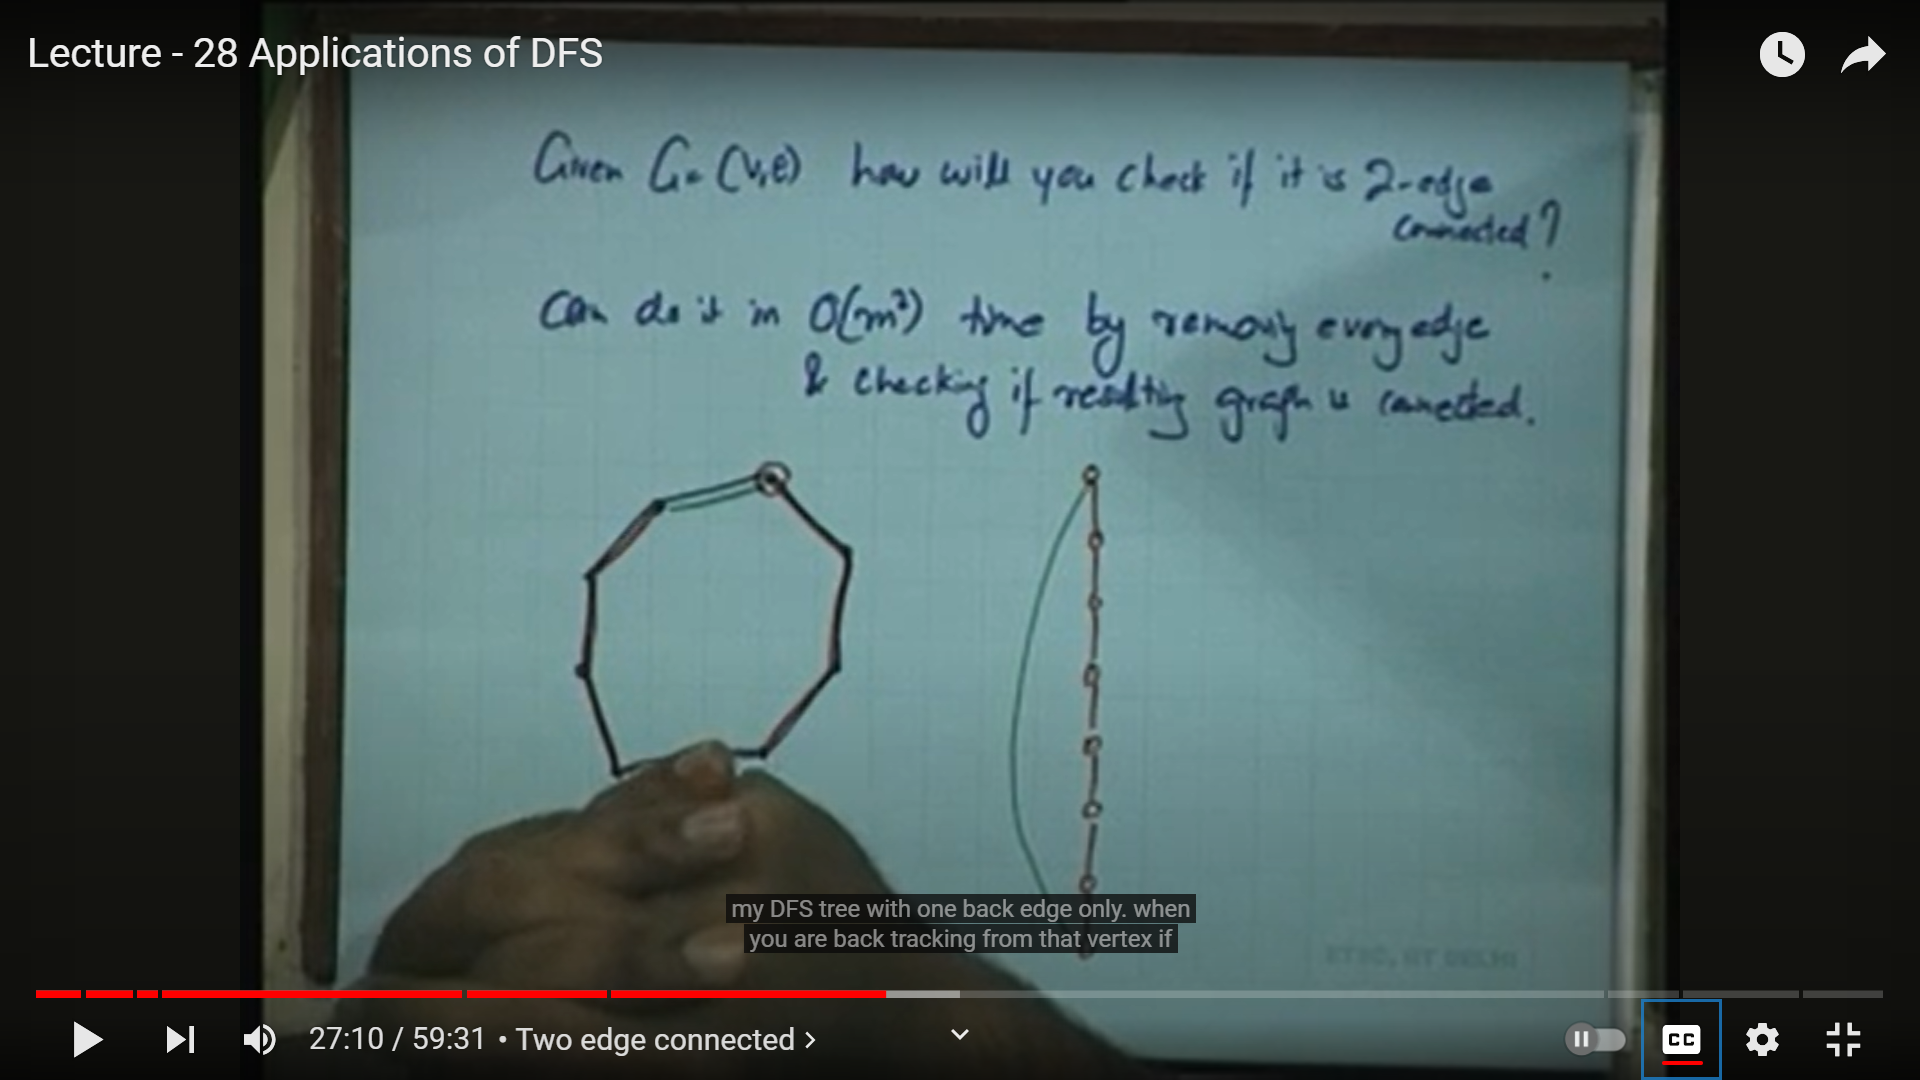 Lecture - 28 Applications of DFS
Given G = (V,E) how will you check if it is 2-edge
connected?
Can do it in O(m²) time by removing every edge
& checking if resulting graph is connected.
my DFS tree with one back edge only. when
you are back tracking from that vertex if
27:10 / 59:31 • Two edge connected ›
CC